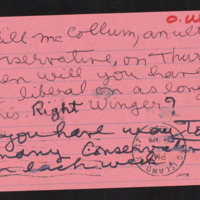 O.W
ill McCollum, an ult
onservative, on Thur
en will you have
liberal on as long
is Right Winger?
you have way to
many Conservativ
n each week
ISLAND
PM